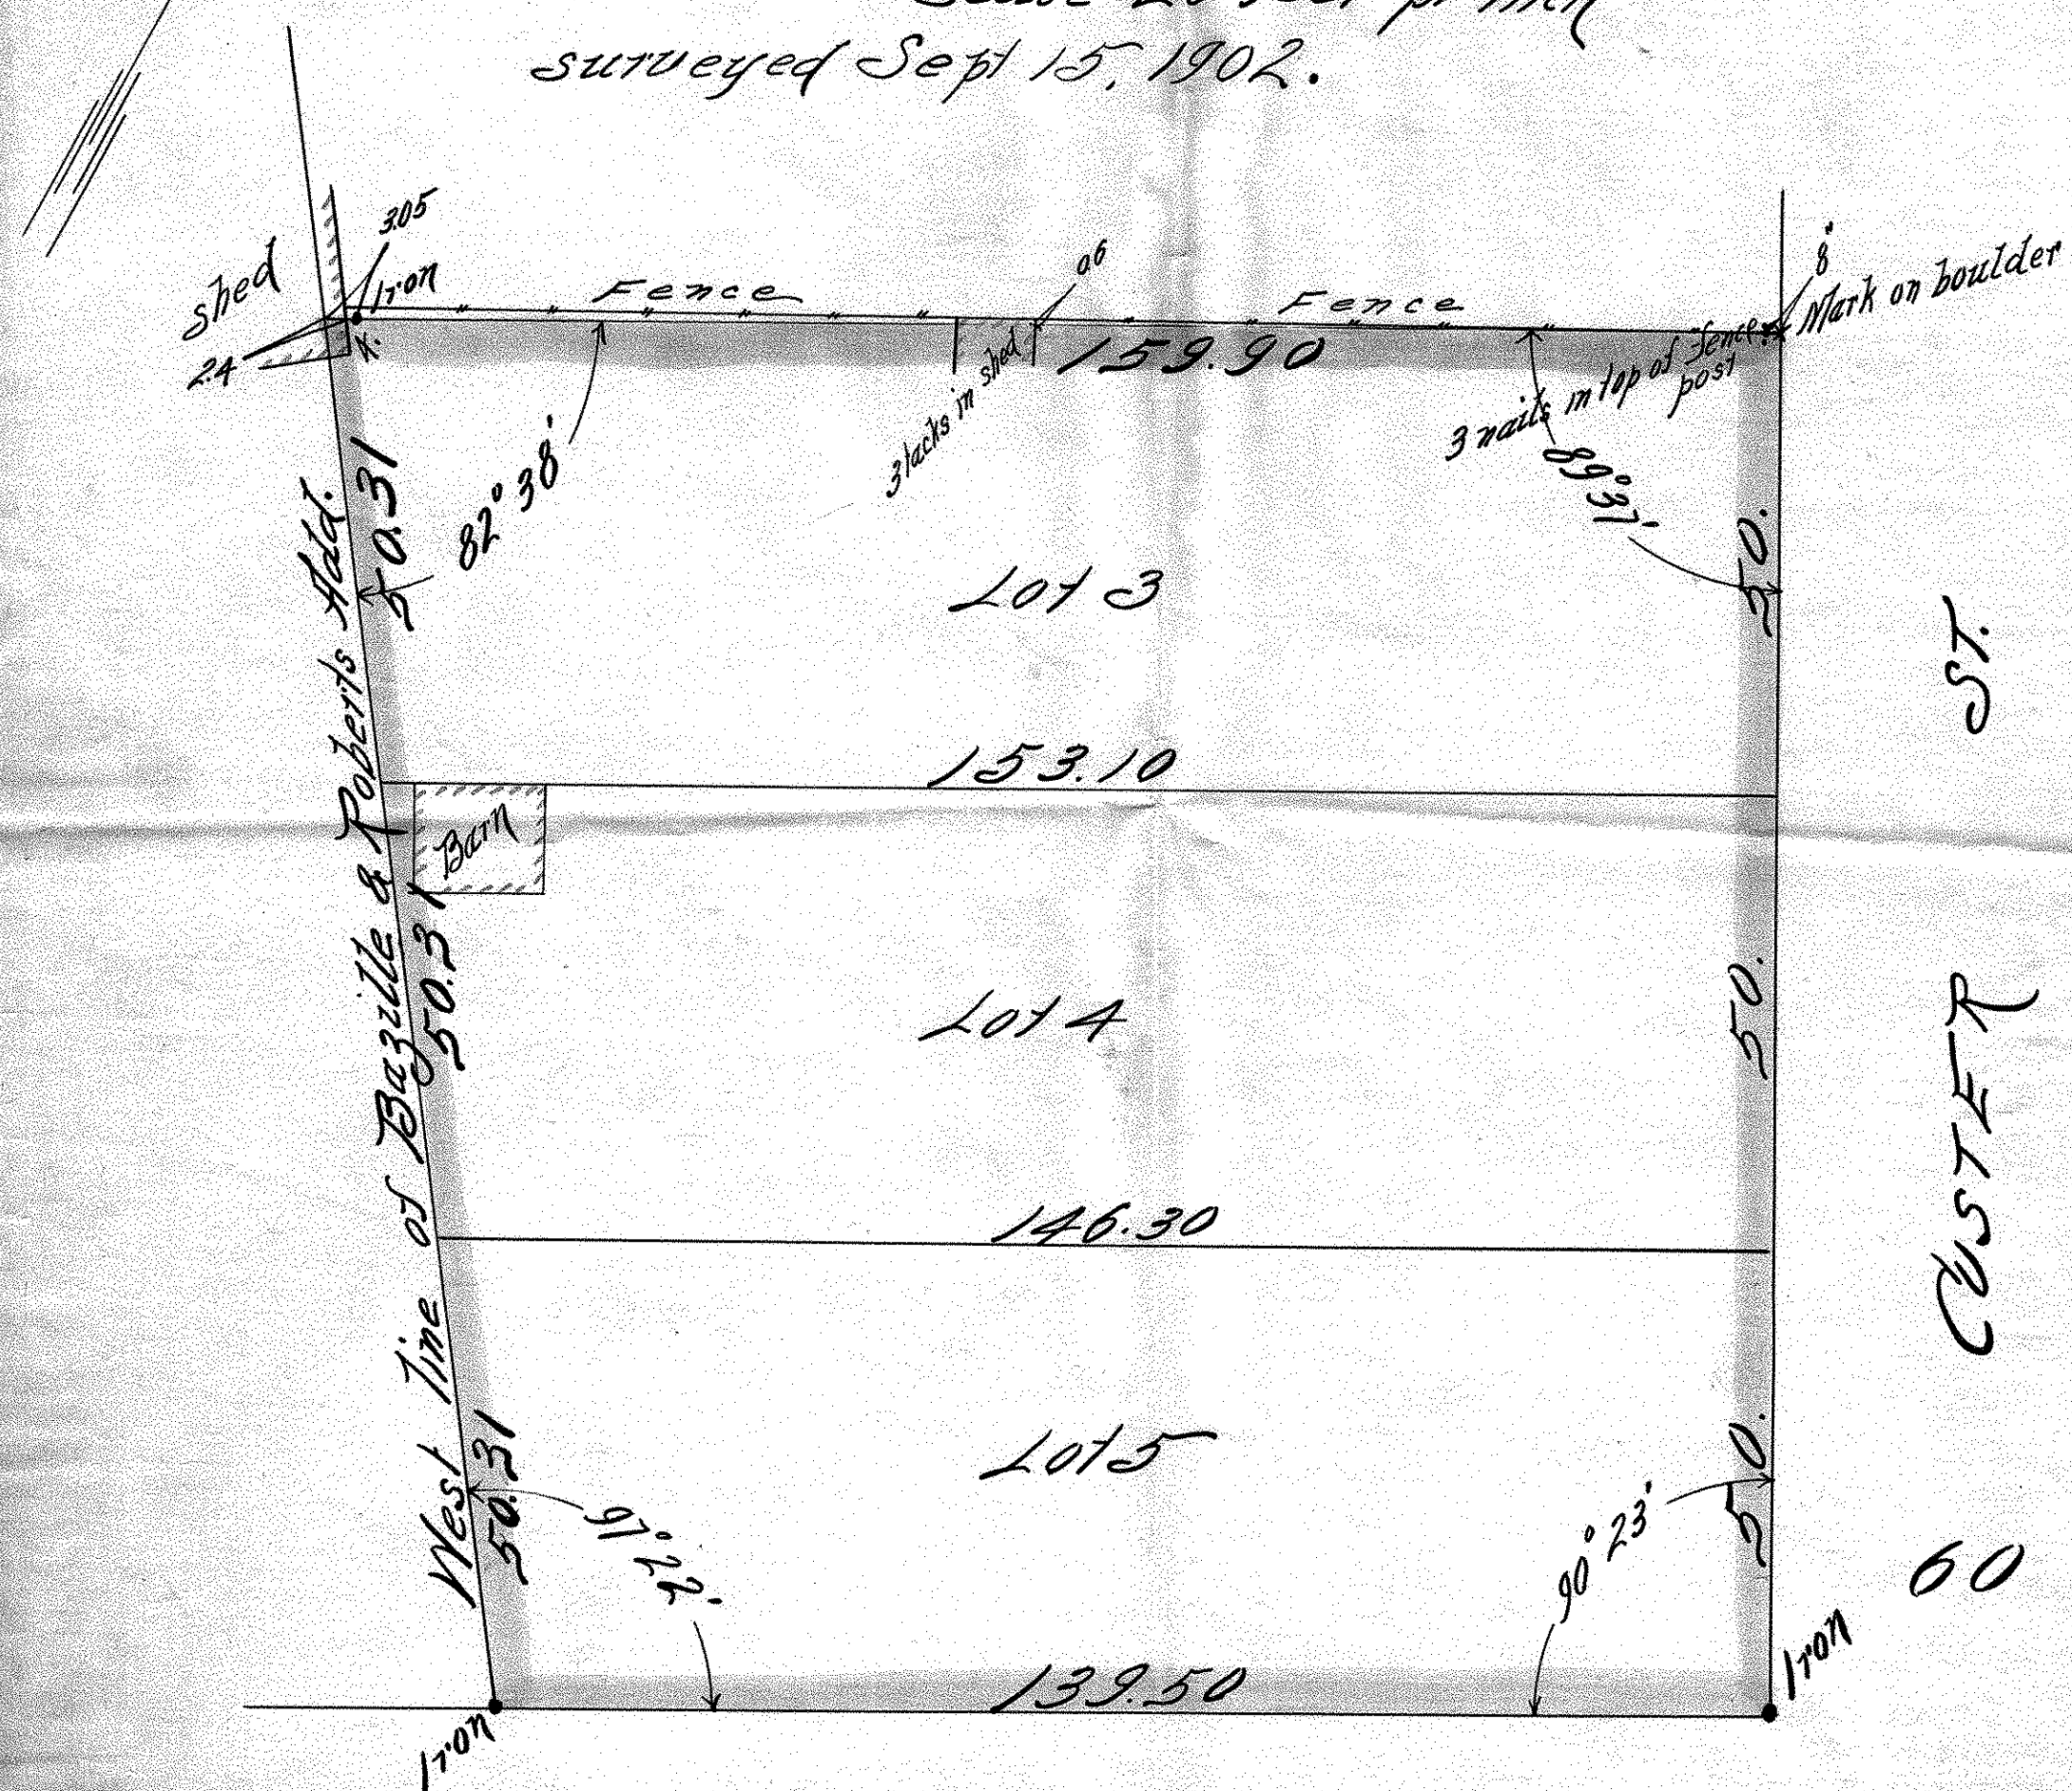 Scale 20 feet pr inch
surveyed Sept 15, 1902.
3.05
shed
Iron
Fence
0.6
Fence
8"
Mark on boulder
2.4
159.90
3 tacks in shed
3 nails in top of fence
post
82° 38'
89° 37'
50.31
50.
Lot 3
ST.
153.10
Barn
West Line of Bazille & Roberts Add.
50.31
Lot 4
50.
CUSTER
146.30
50.31
Lot 5
50.
97° 22'
90° 23'
60
139.50
Iron
Iron